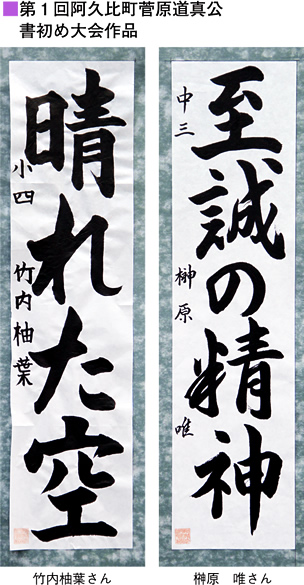 ■第1回阿久比町菅原道真公
書初め大会作品
至誠の精神
中三 榊原 唯
晴れた空
小四 竹内柚葉
竹内柚葉さん
榊原 唯さん